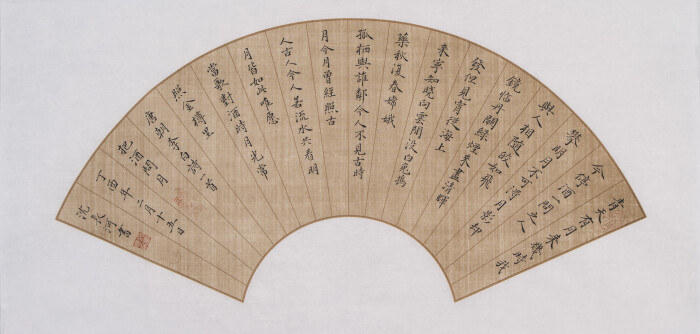 青天有月来幾時我
今停酒一問之人
攀明月不可得月影却
與人相隨皎如飛
鏡臨丹闕綠煙来盡清暉
發但見宵從海上
来寧知曉向雲間没白兔搗
藥秋復春嫦娥
孤栖與誰鄰今人不見古時
月今月曾經照古
人古人今人若流水共看明
月皆如此唯愿
當歌對酒時月光常
照金樽里
唐朝李白詩一首
把酒問月
丁酉年二月十五日
沈長河書